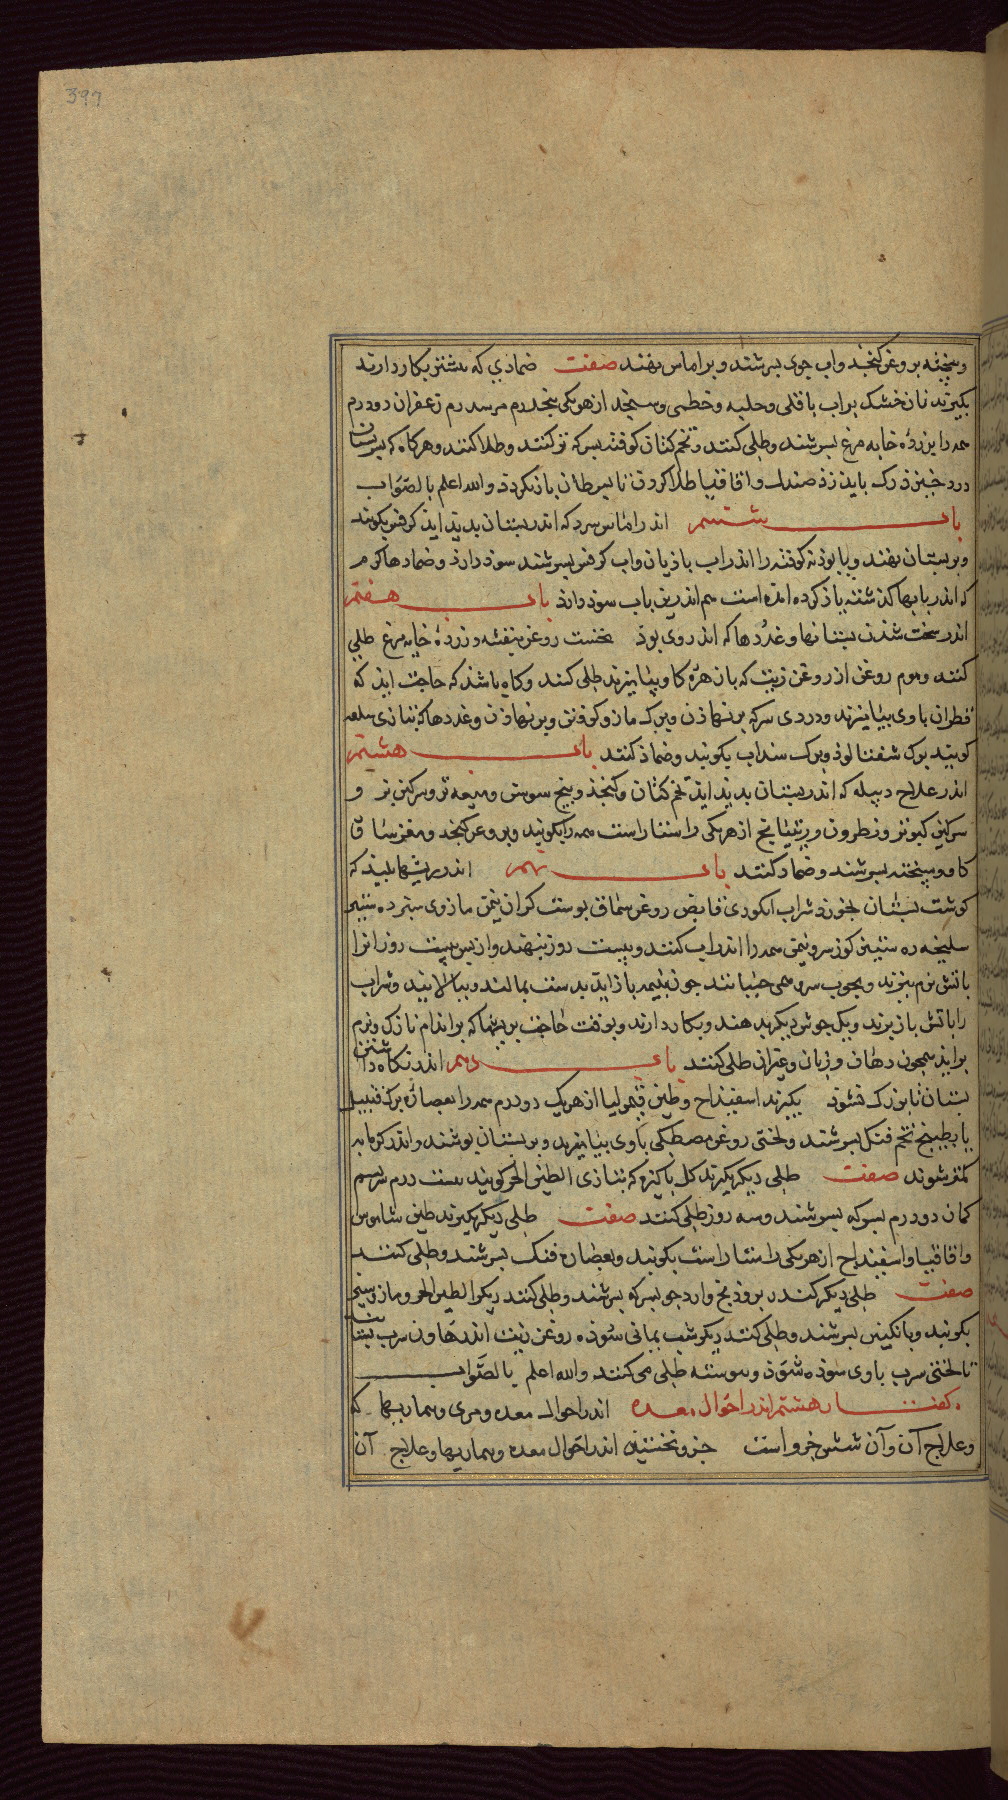 397
وبیخته بروغن کنجد واب جوی بسرشند وبراماس نهند صفت ضمادی که بیشتر بکار دارند
بکیرند نان خشک براب باقلی وحلبه وخطمی وسبخه ازهریکی پنجدرم مر سدرم زعفران دودرم
همه را بزرده خایه مرغ بسرشند وطلی کنند وتخم کتان کوفته بسرکه تر کنند وطلا کنند وهرکاه که پستان
درد خیزد زرک باید زد صندل واقاقیا طلا کردن تا بسرطان بازنکردد والله اعلم بالصواب
باب ششم اندر اماس سرد که اندر پستان بدید اید کرفس بکوبند
وبر پستان نهند وبابونه کوفته را اندر اب بادیان واب کرفس بسرشند سود دارد وضمادها کرم
که اندر بابهاء کذشته یاذ کرده امده است هم اندرین باب سود دارد باب هفتم
اندر سخت شدن پستانها وغددها که اندر وی بوذ نخست روغن بنفشه وزرده خایه مرغ طلی
کنند وموم روغن از روغن زیت که با زهره کاو بیامیزند طلی کنند وکاه باشد که حاجت اید که
قطران باوی بیامیزند ودردی سرکه برنهاذن وبرک مازو کوفتن وبرنهاذن وغددها که بتازی سلعه
کویند برک شفتالوذ وبرک سداب بکوبند وضماذ کنند باب هشتم
اندر علاج دبیله که اندر پستان بدید اید تخم کتان وکنجد وبیخ سوسن ومیعه تر وسرکین تر و
سرکین کبوتر ونطرون وریتیانج ازهریکی راستا راست همه را بکوبند وبروغن کنجد ومغز ساق
کاو وبیخته بسرشند وضماد کنند باب نهم اندر ریشها پلید که
کوشت پستان بخورد شراب انکوری قابض روغن سماق پوست کران نیمن مازوی سبز ده ستیر
سلیخه ده ستیر کوز سرو نیمن همه را اندر اب کنند وبیست روز بنهند واز پس بیست روز انرا
باتش نرم بپزند وبچوب سرو همی جنبانند چون بنیمه باز اید بدست بمالند وبپالایند وشراب
را باتش باز برند ویک جوش دیکر بدهند وبکار دارند وبوقت حاجت بریشها که براندام نازک ونرم
براید همچون دهان وزبان وغیران طلی کنند باب دهم اندر نکاه داشتن
پستان تا بزرک نشود بکیرند اسفیذاج وطین قیمولیا ازهریک دودرم همه را بعصاره برک
یا بطبیخ تخم فنکل بسرشند ولختی روغن مصطکی باوی بیامیزند وبر پستان پوشند واندر کرمابه
کمتر شوند صفت طلی دیکر بکیرند کل پاکیزه که بتازی الطین الحر کویند بیست درم
کمان دودرم بسرکه بسرشند وسه روز طلی کنند صفت طلی دیکر بکیرند طین شاموس
واقاقیا واسفیذاج ازهریکی راستا راست بکوبند وبعصاره فنک بسرشند وطلی کنند
صفت طلی دیکر کندر بروذ نخ وارد جو بسرکه بسرشند وطلی کنند دیکر الطین الحر ومازو سبز
بکوبند وبانکبین بسرشند وطلی کنند دیکر شب یمانی سوذه روغن زیت اندر هاون سرب بسایند
تا لختی سرب باوی سوذه شوذ وپیوسته طلی می کنند والله اعلم بالصواب
کفتار هشتم اندر احوال معده اندر احوال معده ومری وبیماریها که
وعلاج آن وآن شش جزو است جزو نخستین اندر احوال معده وبیماریها وعلاج آن